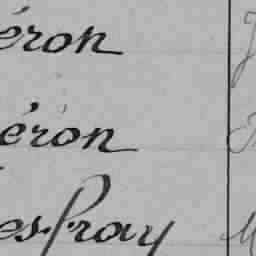 éron
éron
esfray